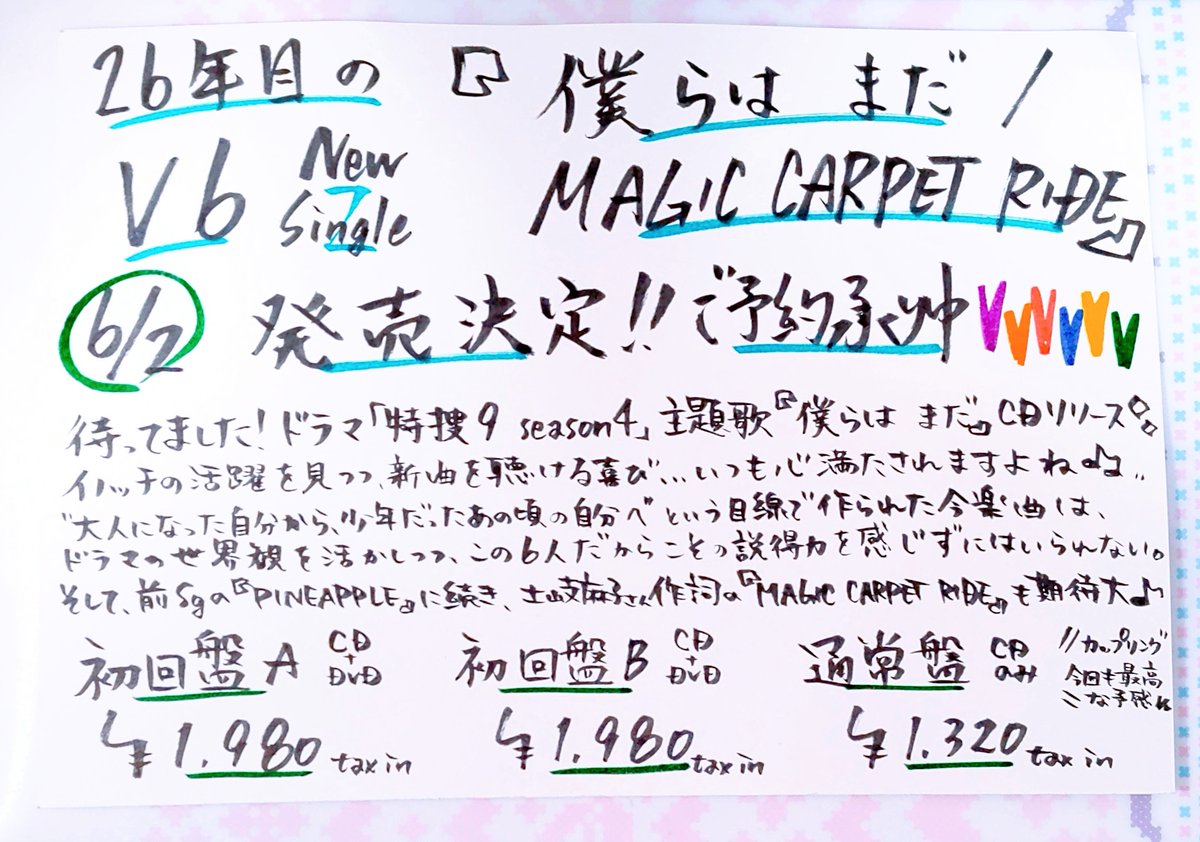 26年目の
V6 New Single
『僕らは まだ /
MAGIC CARPET RIDE』
6/2 発売決定!! ご予約承り中 VVVVVV
待ってました! ドラマ「特捜9 season4」主題歌『僕らは まだ』CDリリース
イノッチの活躍を見つつ、新曲を聴ける喜び…いつも心満たされますよね♪♪..
"大人になった自分から、少年だったあの頃の自分へ"という目線で作られた今楽曲は、
ドラマの世界観を活かしつつ、この6人だからこその説得力を感じずにはいられない。
そして、前Sgの『PINEAPPLE』に続き、土岐麻子さん作詞の『MAGIC CARPET RIDE』も期待大♪
初回盤A CD+DVD
¥1.980 tax in
初回盤B CD+DVD
¥1.980 tax in
通常盤 CDのみ
¥1.320 tax in
//カップリング
今回も最高
な予感